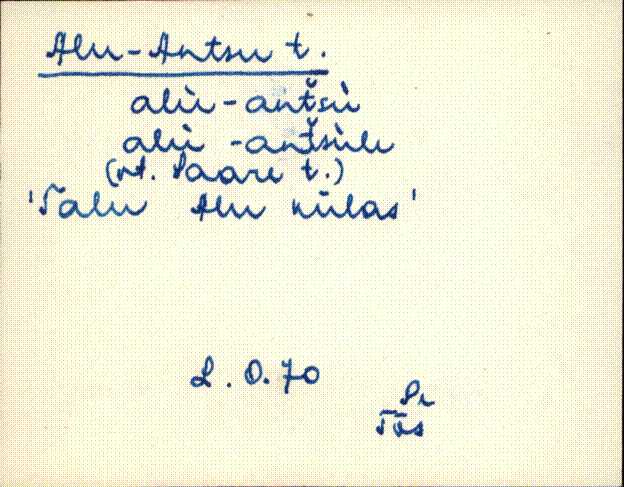 Alu-Antsu t.
alù-antsù
alù -antsùle
(vt. Saare t.)
'Talu Alu külas'
L. O. 70
Pr
Tõs